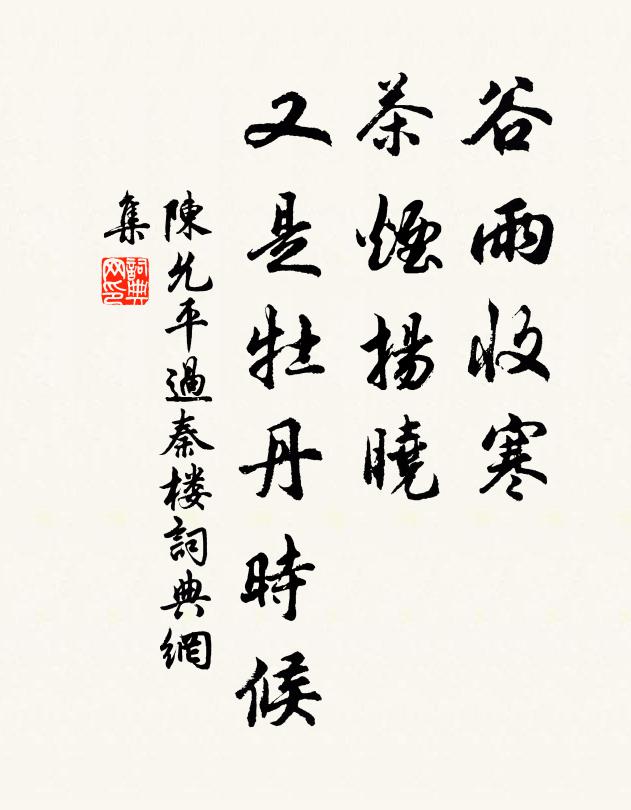 谷雨收寒
茶煙揚曉
又是牡丹時候
陳允平過秦楼詞典網
集
詞典
网印